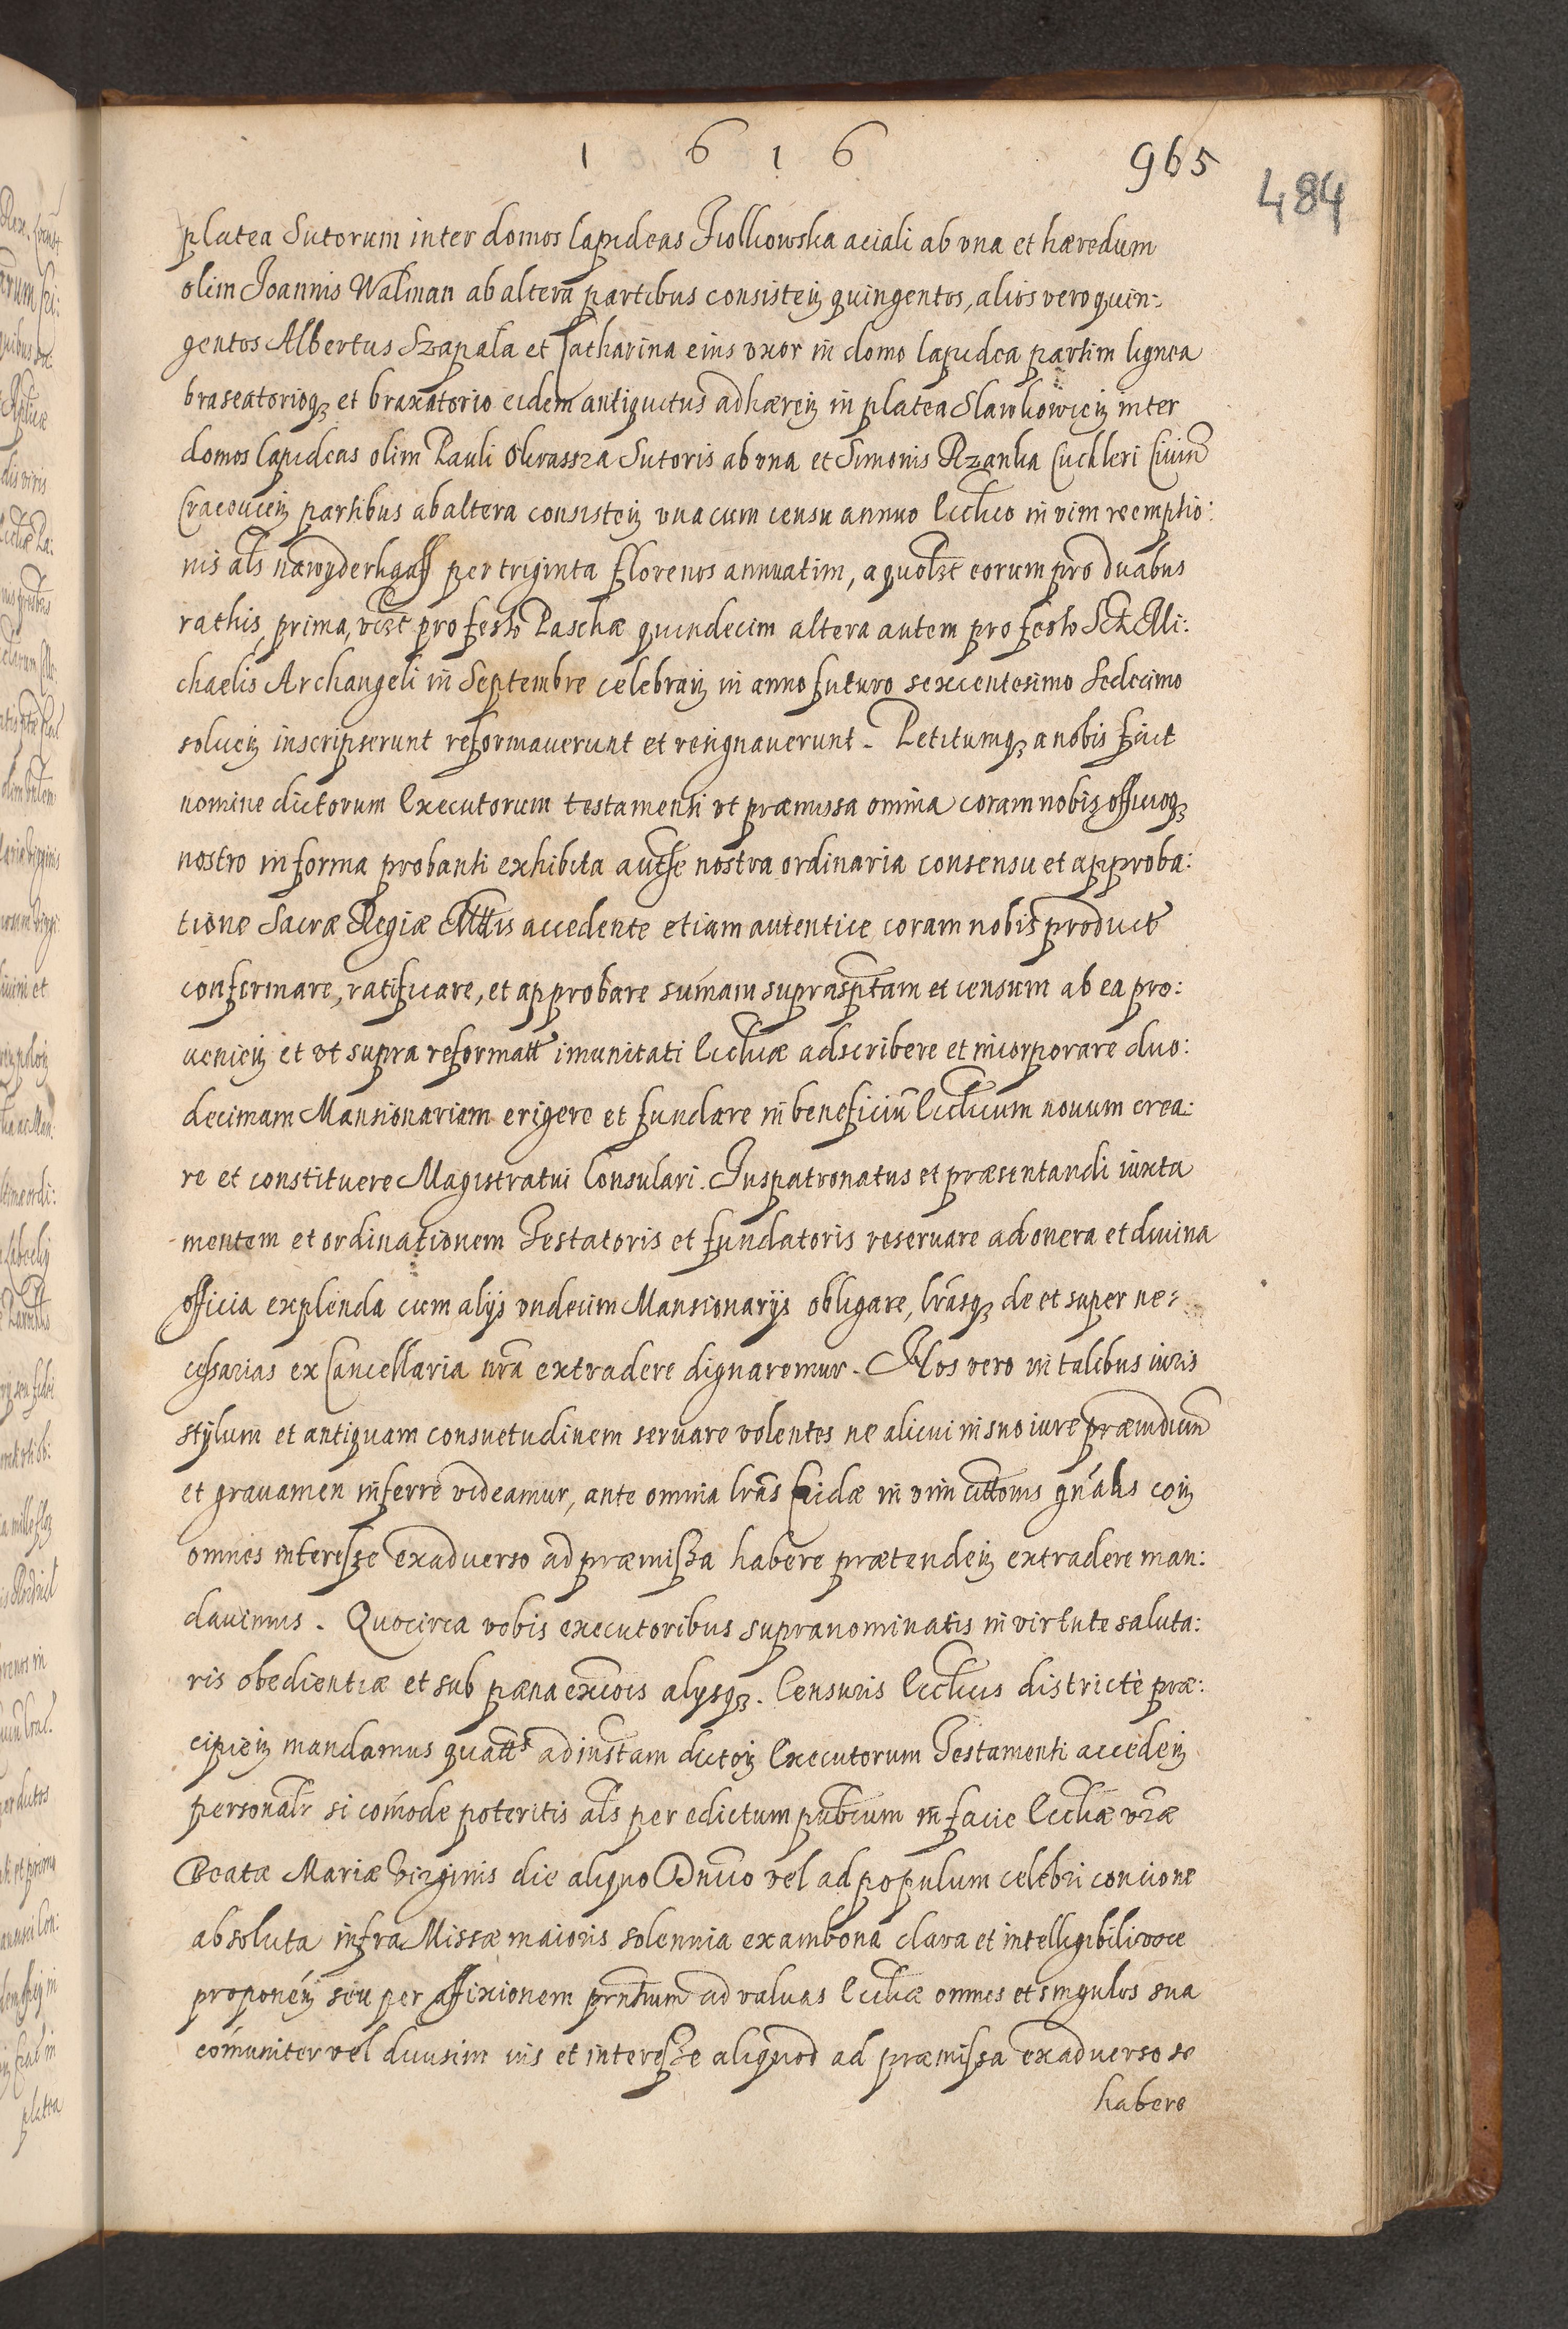 1 6 1 6
965
484
platea Sutorum inter domos lapideas Fiolkowska aciali ab vna et hæredum
olim Joannis Walman ab altera partibus consisteñ quingentos, alios vero quin:
gentos Albertus Szapala et Catharina eius vxor in domo lapidea partim lignea
braseatorioq3 et braxatorio eidem antiquitus adhæreñ in platea Slawkowieñ inter
domos lapideas olim Pauli Okrassza Sutoris ab vna et Simonis Rzanka Cuchleri Ciuiũ
Cracouieñ partibus ab altera consisteñ vna cum censu annuo Ecclico in vim reemptio:
nis als nawyderkaff per triginta florenos annuatim, a quolzt eorum pro duabus
rathis, prima, vczt pro festo Paschæ quindecim altera autem pro festo Sti Mi:
chaelis Archangeli in Septembre celebrañ in anno futuro sexcentesimo Sedecimo
solueñ inscripserunt reformauerunt et resignauerunt. Petitumq3 a nobis fuit
nomine dictorum Executorum testamenti vt præmissa omnia coram nobis officioq3
nostro in forma probanti exhibita autħe nostra ordinaria consensu et approba:
tione Sacræ Regiæ Mttis accedente etiam autentice coram nobis product
confirmare, ratificare, et approbare sum̃am suprasp̃tam et censum ab ea pro:
uenieñ et vt supra reformatt im̃unitati Ecclicæ adscribere et incorporare duo:
decimam Mansionariam erigere et fundare in beneficiũ Ecclicum nouum crea:
re et constituere Magistratui Consulari. Juspatronatus et præsentandi iuxta
mentem et ordinationem Testatoris et fundatoris reseruare ad onera et diuina
officia explenda cum alijs vndecim Mansionarijs obligare, lr̃asq3 de et super ne:
cessarias ex Cancellaria nr̃a extradere dignaremur. Nos vero in talibus iuris
stylum et antiquam consuetudinem seruare volentes ne alicui in suo iure præiudiciũ
et grauamen inferre videamur, ante omnia lr̃as Cridæ in vim cittonis gñalis coñ
omnes interesse exaduerso ad præmissa habere prætendeñ extradere man:
dauimus. Quocirca vobis executoribus supranominatis in virtute saluta:
ris obedientiæ et sub pæna excõis alysq3. Censuris Ecclicis districtè præ:
cipieñ mandamus quatts ad instam dictoñ Executorum Testamenti accedeñ
personalr si com̃ode poteritis als per edictum pub̃cum in facie Eccliæ vr̃æ
Beatæ Mariæ Virginis die aliquo Dñico vel ad populum celebri concione
absoluta infra Missæ maioris solennia ex ambona clara et intelligibili voce
proponeñ seu per affixionem præntium ad valuas Eccliæ omnes et singulos sua
com̃uniter vel diuisim ius et interesse aliquod ad præmissa exaduerso se
habere